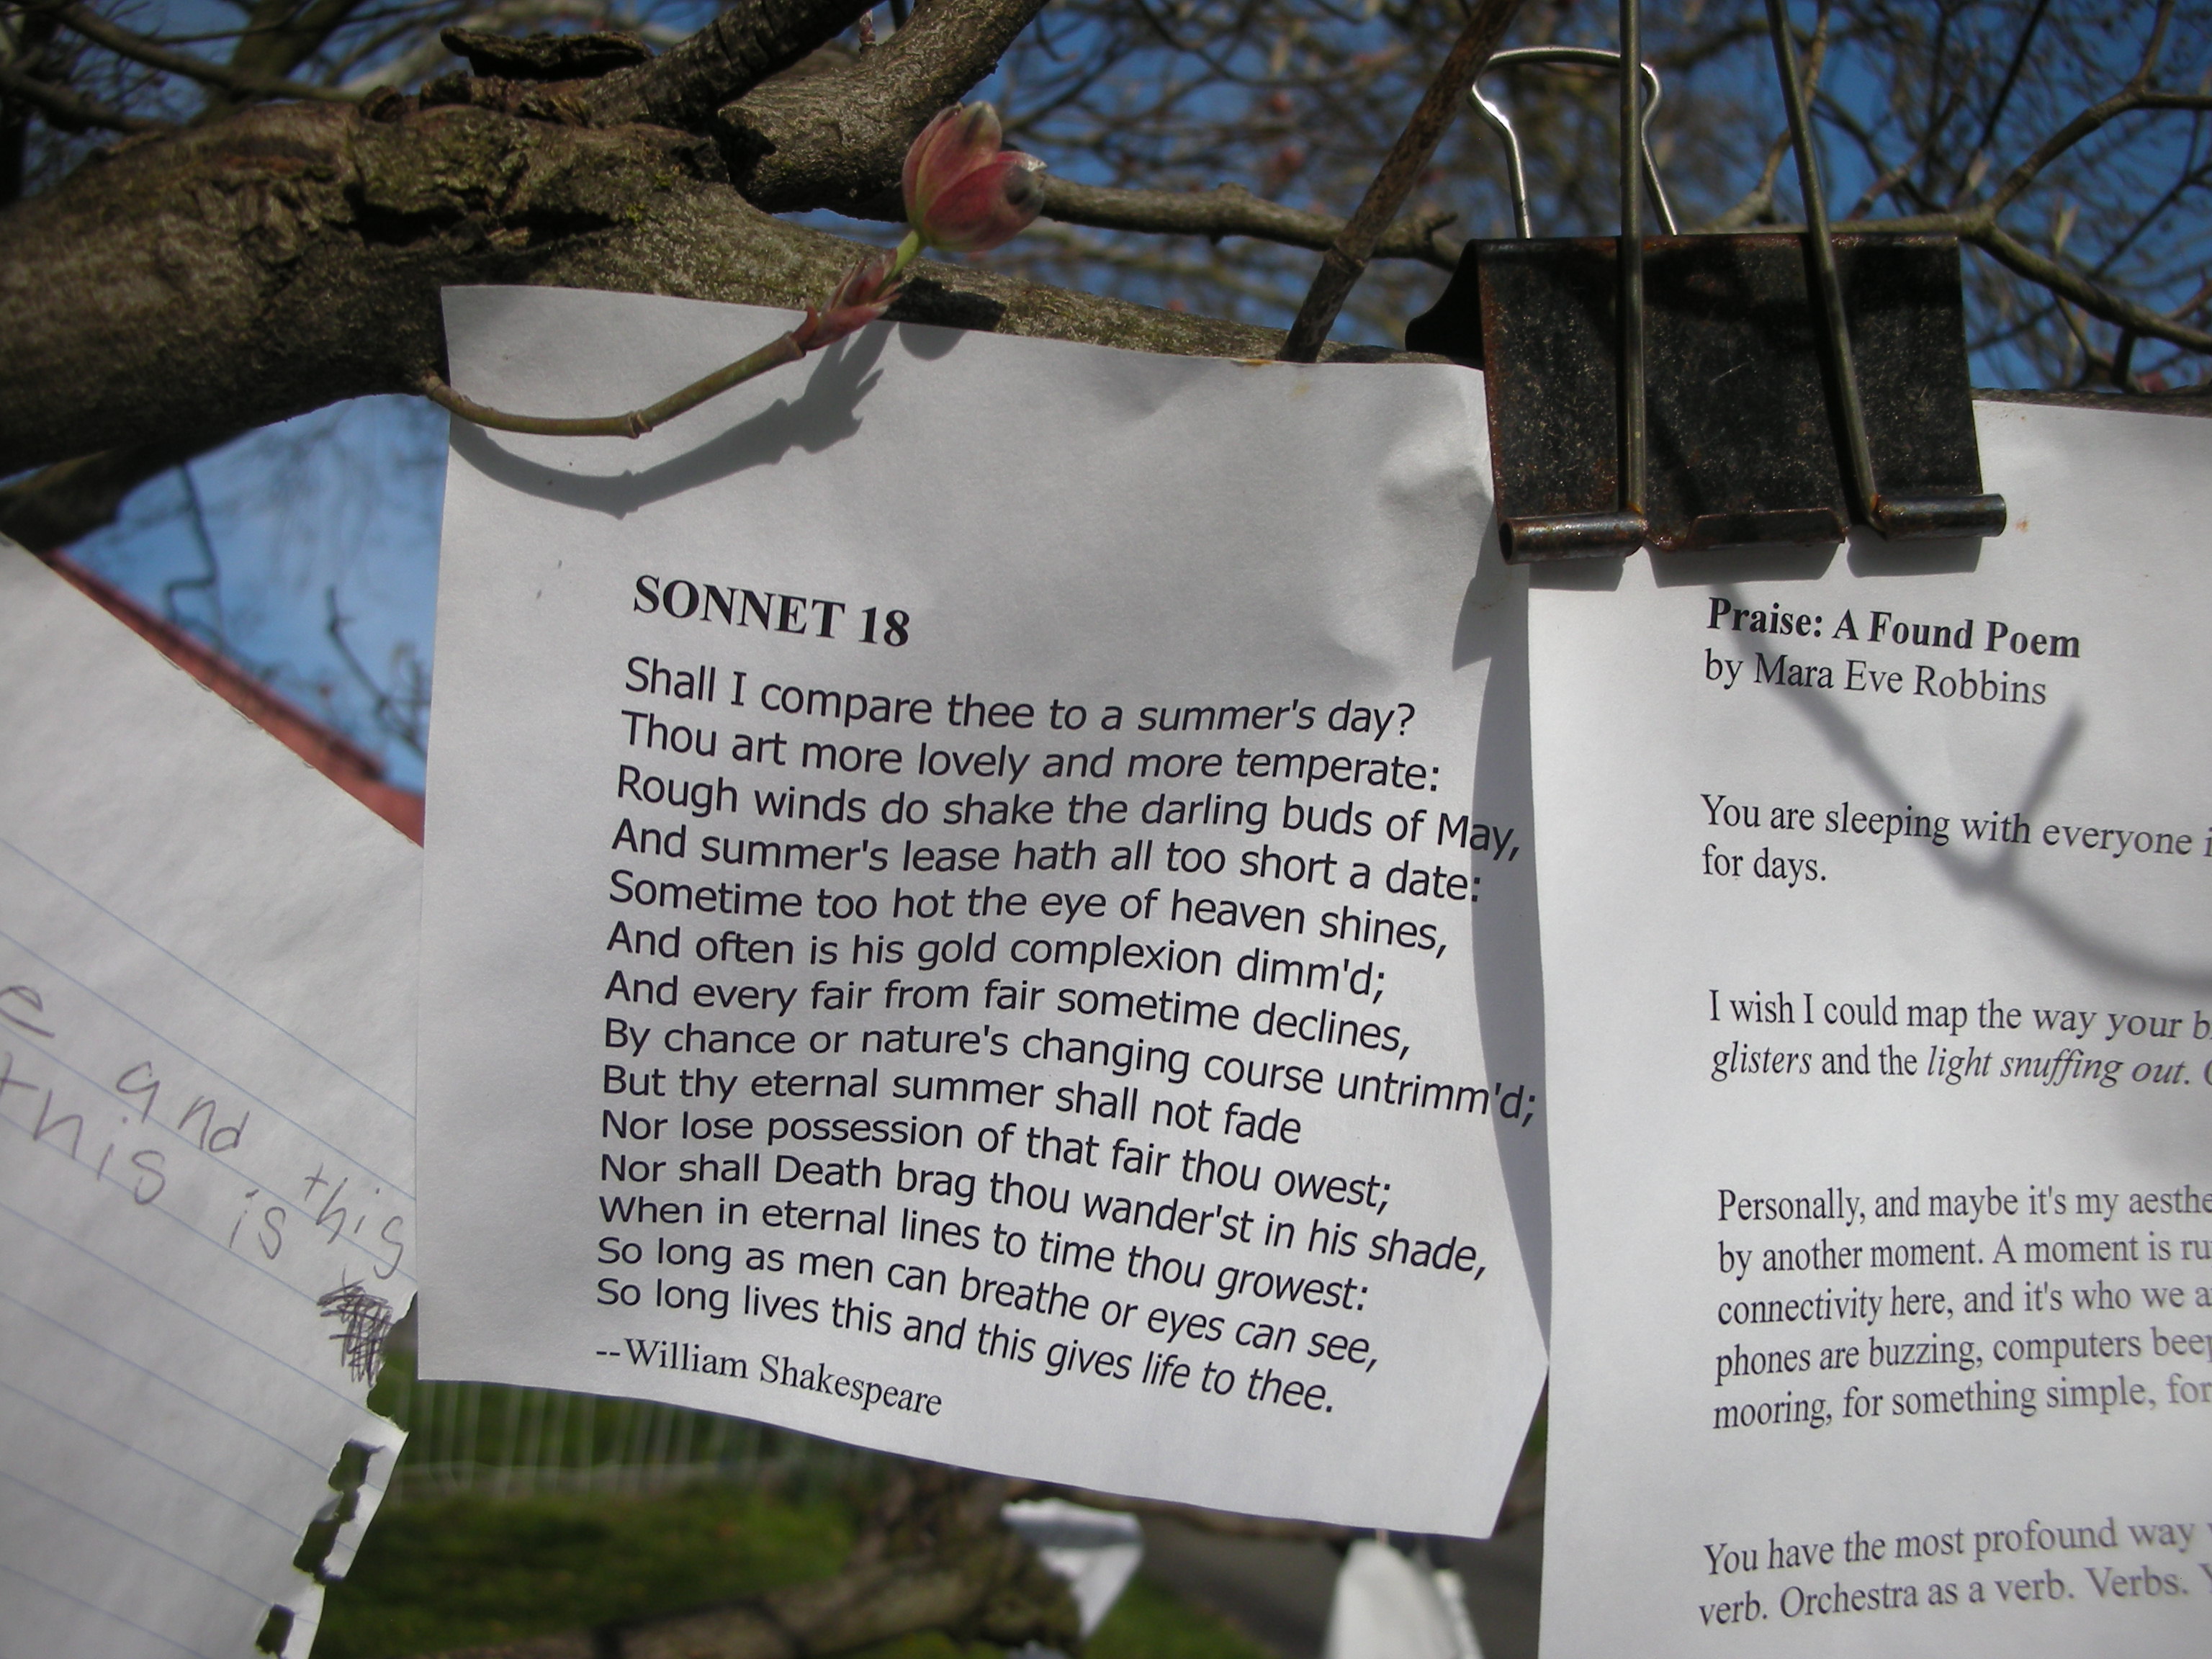 e and this
this is
SONNET 18
Shall I compare thee to a summer's day?
Thou art more lovely and more temperate:
Rough winds do shake the darling buds of May,
And summer's lease hath all too short a date:
Sometime too hot the eye of heaven shines,
And often is his gold complexion dimm'd;
And every fair from fair sometime declines,
By chance or nature's changing course untrimm'd;
But thy eternal summer shall not fade
Nor lose possession of that fair thou owest;
Nor shall Death brag thou wander'st in his shade,
When in eternal lines to time thou growest:
So long as men can breathe or eyes can see,
So long lives this and this gives life to thee.
--William Shakespeare
Praise: A Found Poem
by Mara Eve Robbins
You are sleeping with everyone
for days.
I wish I could map the way your
glisters and the light snuffing out.
Personally, and maybe it's my
by another moment. A moment is
connectivity here, and it's who we
phones are buzzing, computers
mooring, for something simple, for
You have the most profound way
verb. Orchestra as a verb. Verbs.